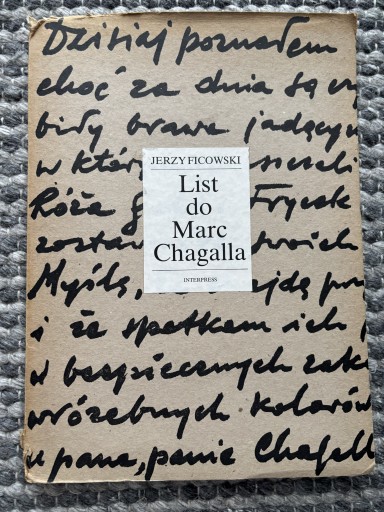 Dzisiaj poznałem
choć za dnia są
biły brawa jadącym
w
Róża Frycek
zostaw
Myślę,
i że spotkam ich
w bezpiecznych zak
wróżebnych kolorów
u pana, panie Chagall
JERZY FICOWSKI
List
do
Marc
Chagalla
INTERPRESS